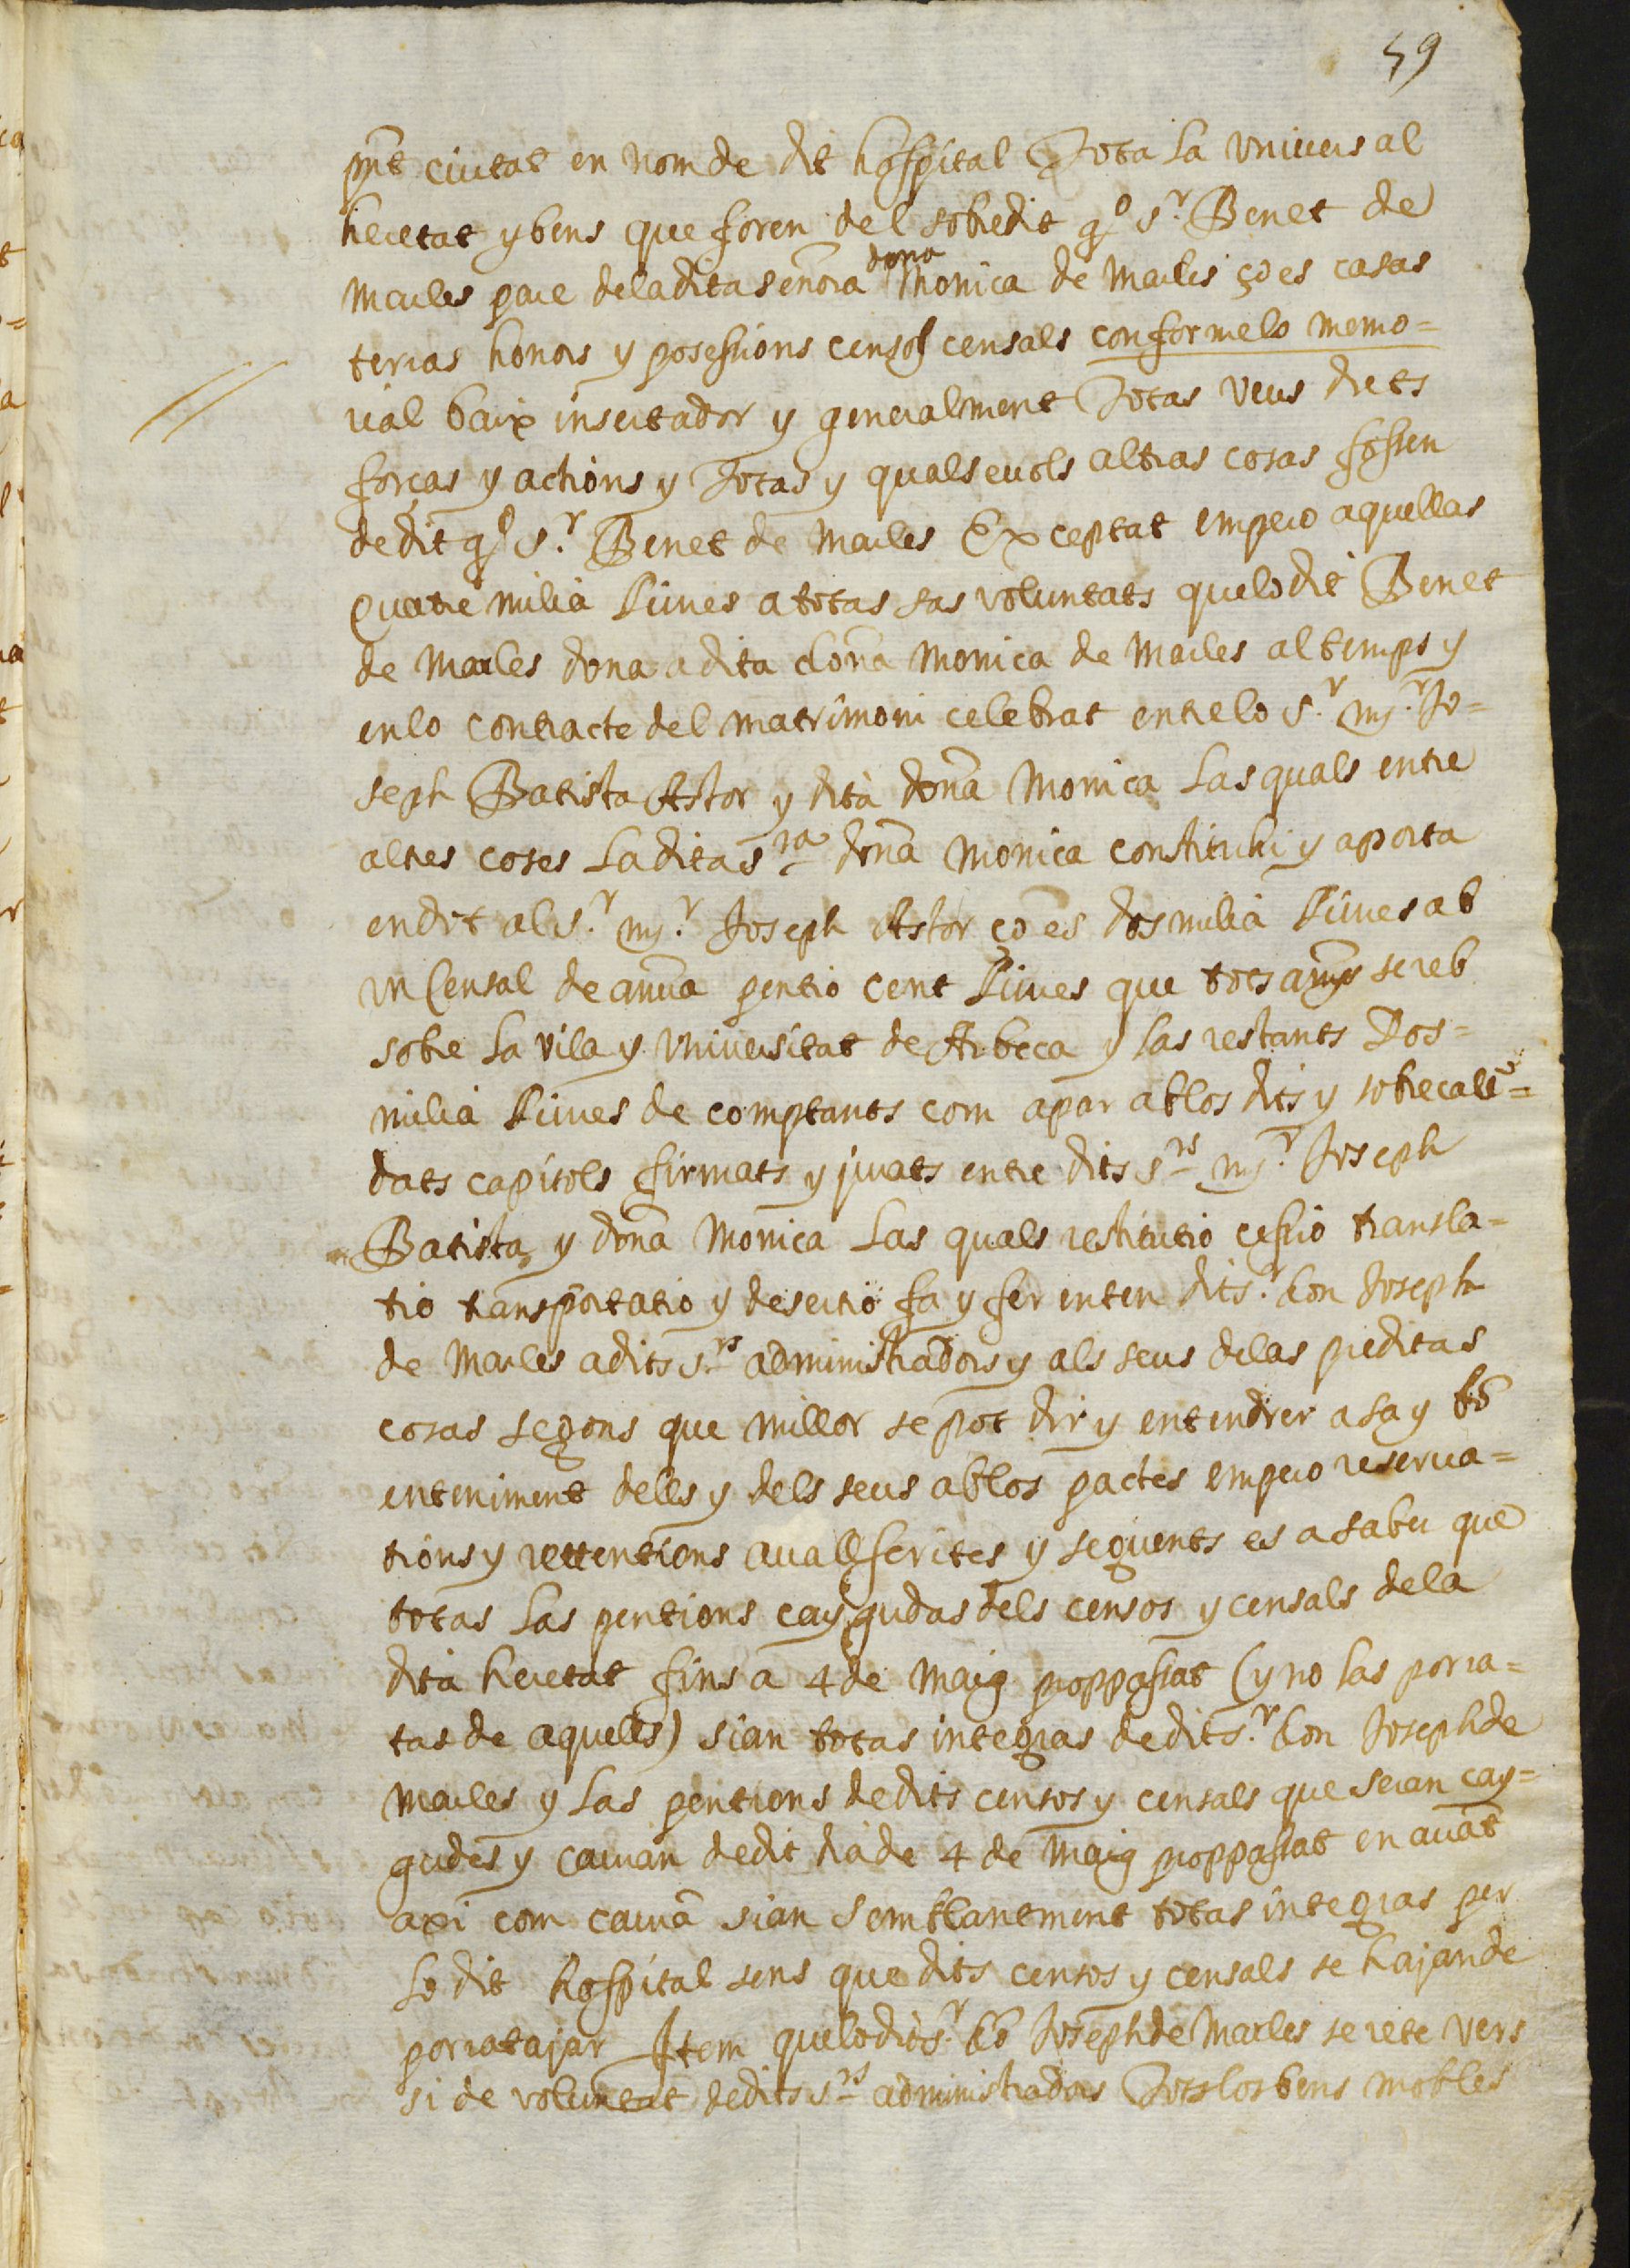 59
pnt ciutat en nom de dit hospital Tota la universal
heretat y bens que foren del sobredit qº sr. Benet de
Marles pare de la dita señora dona Monica de Marles ço es casas
terras honors y possessions censos censals conforme lo memo=
rial baix insertador y generalment Totas veus drets
forças y actions y Totas y qualsevols altras cosas fossen
de dit qº sr. Benet de Marles Exceptat empero aquellas
Quatre milia lliures a totas sas voluntats que lo dit Benet
de Marles dona a dita dona Monica de Marles al temps y
en lo contracte del matrimoni celebrat entre lo sr. mr. Jo=
seph Batista Astor y dita dona Monica Las quals entre
altres coses La dita sra dona Monica constituhi y aporta
en dot al sr. mr. Joseph Astor ço es dos milia lliures ab
un Censal de annua pentio cent lliures que tots anys se reb
sobre la vila y universitat de Arbeca y las restants Dos=
milia lliures de comptants com apar ab los dits y sobrecalen=
dats capitols firmats y jurats entre dits srs mr. Joseph
Batista y dona Monica Las quals restitutio cessio transla=
tio transportatio y desertio fa y fer enten dit sr. don Joseph
de Marles a dits srs administradors y als seus de las preditas
cosas segons que millor se pot dir y entendrer a sa y bo
enteniment dells y dels seus ab los pactes empero reserva=
tions y rettentions avall scrites y seguents es a saber que
totas las pentions caygudas dels censos y censals de la
dita heretat fins a 4 de Maig proppassat (y no las porra=
tas de aquells) sian totas integras de dit sr. don Joseph de
Marles y las pentions de dits censos y censals que seran cay=
gudes y cauran de dit dia de 4 de Maig proppassat en avat
axi com caura sian semblantment totas integras per
lo dit hospital sens que dits censos y censals se hajan de
porratajar Item que lo dit sr. do Joseph de Marles se rete vers
si de voluntat de dits srs administradors Tots los bens mobles